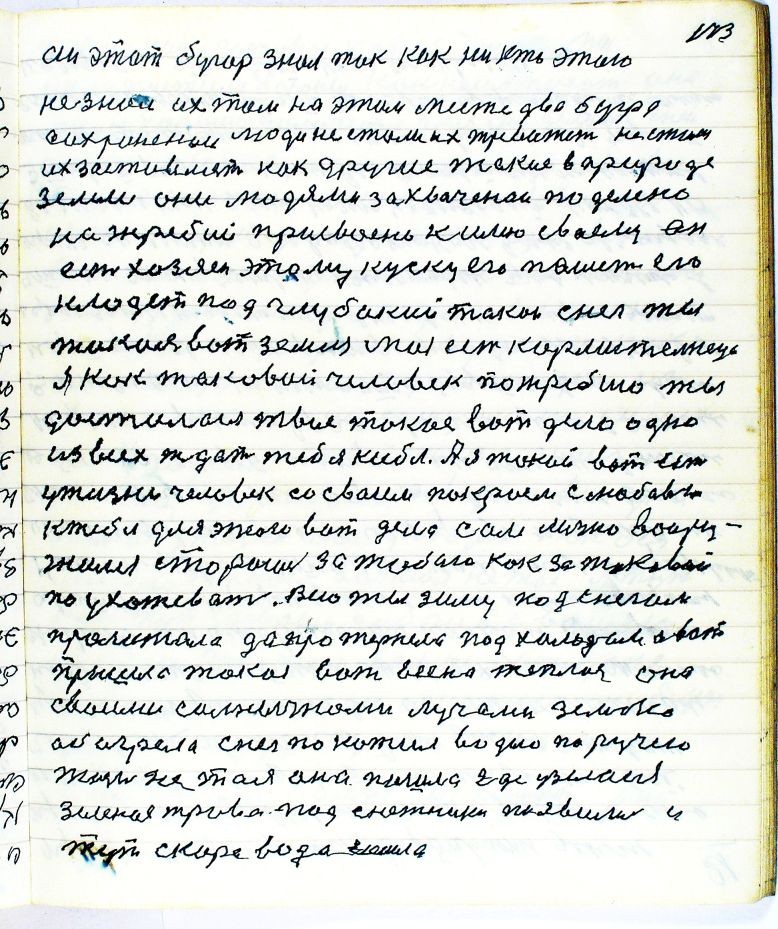 183
он этот бугор знал так как ни кть этого
не знал их там на этом месте два бугра
сохраненаи люди не стали их тревожит не стали
их заставлят как другие такие в природе
Земли они людями захваченаи поделено
на жребий присвоень к имю своему он
ест хозяен этому куску его пашет его
кладет под глубакий такои снег ты
такая вот земля моя ест кормителнеца
Я как таковой человек потребно ты
досталася твое такое вот дело одно
из всех ждат тебя кабл. А я такой вот ест
у жизни человек со сваем покроем с
к тебл для этого вот дела сам лично воору-
жился стороши за табаю как за таковой
по ухаживат. Всю ты зиму под снегам
пралижала да протерпела под холодам а вот
пришла такая вот весна теплая она
своими солнычнами лучами земтко
абагрела снег покотил водою по ручею
жизн не тая она пашла где узелася
Зеленая трава под снежники появили и
тут скора вода зашла